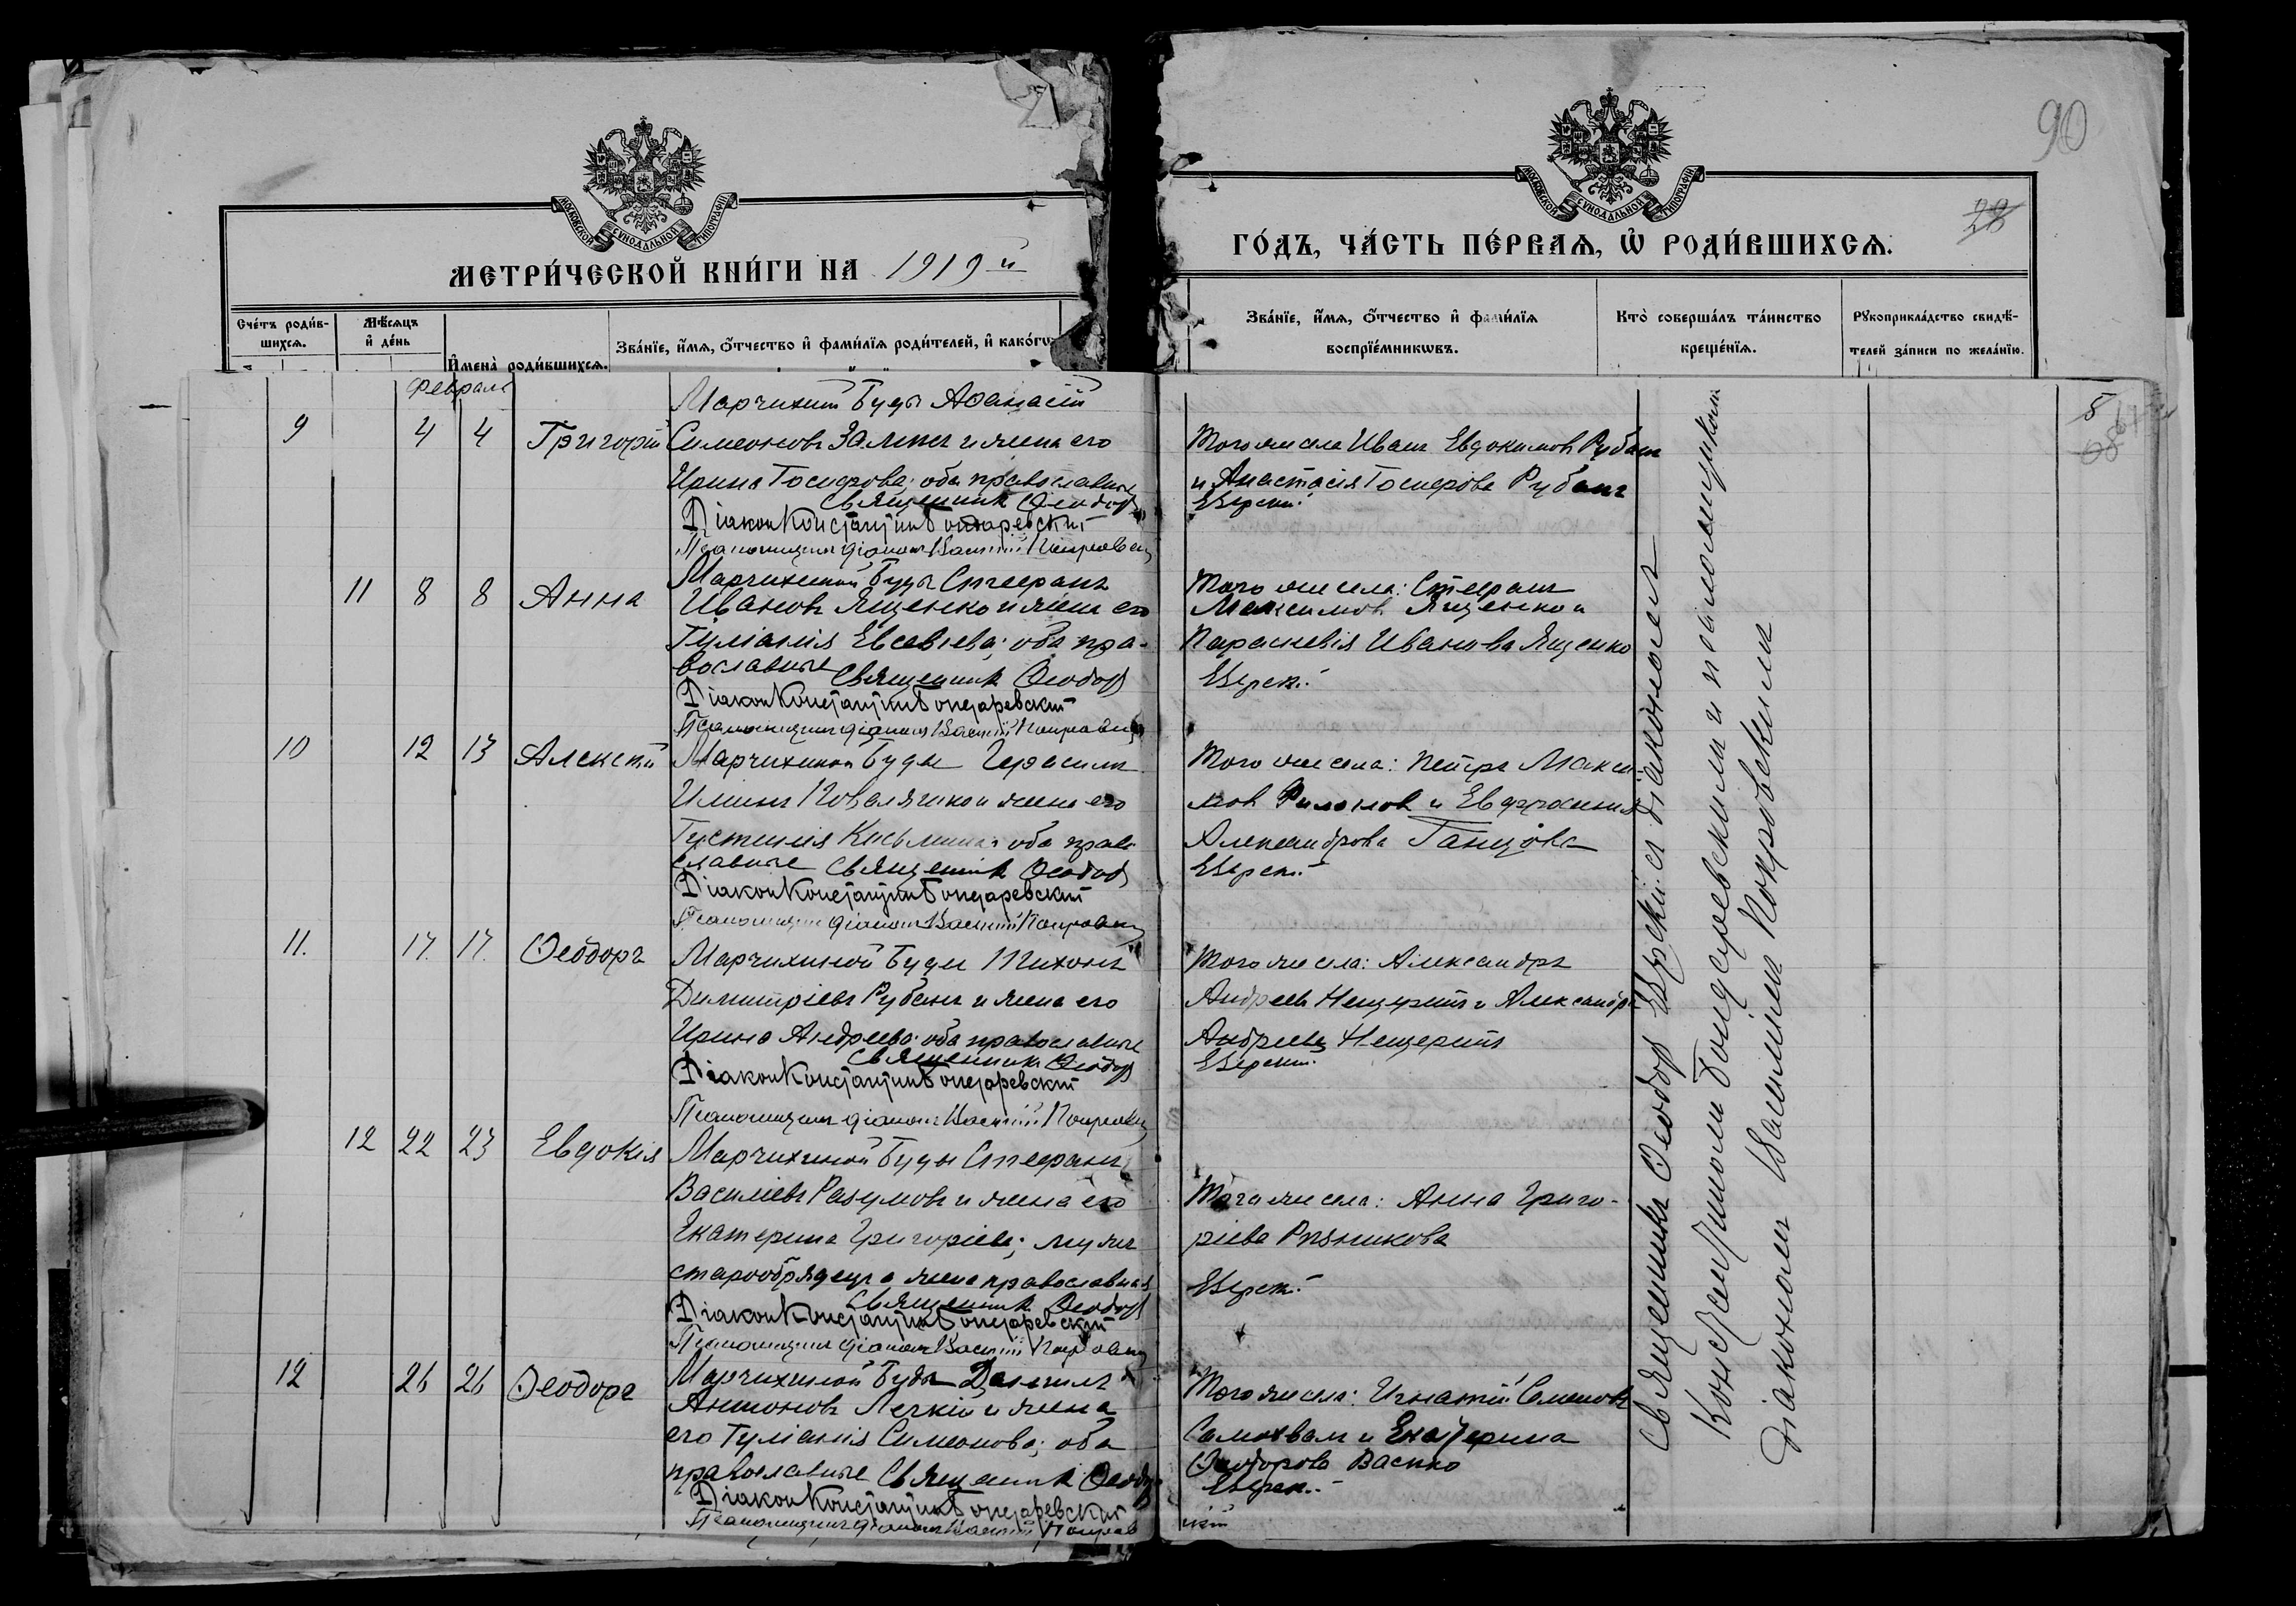 90
28
МОСКОВСКОЙ СѴНОДАЛЬНОЙ ТИПОГРАФІИ
МОСКОВСКОЙ СѴНОДАЛЬНОЙ ТИПОГРАФІИ
МЕТРИ́ЧЕСКОЙ КНИ́ГИ НА 1919 й
ГО́ДЪ, ЧА́СТЬ ПЕ́РВАѦ, Ѡ҆ РОДИ́ВШИХСѦ.
Сче́тъ роди́в-
шихсѧ.
Мѣ́сѧцъ
и҆ де́нь
И҆мена̀ роди́вшихсѧ.
Зва́нїе, и҆́мѧ, ѻ҆́тчество и҆ фами́лїѧ роди́телей, и҆ како́гѡ
Зва́нїе, и҆́мѧ, ѻ҆́тчество и҆ фами́лїѧ
воспрїе́мникѡвъ.
Кто̀ соверша́лъ та́инство
креще́нїѧ.
Рꙋкоприкла́дство свидѣ́-
телей за́писи по жела́нїю.
Февраль
9 4 4 Григорій
Марчихиной Буды Аѳанасій
Симеоновъ и жена его
Ирина Іосифова; оба православные
Священник Ѳеодор
Діакон Константин Бондаревский
Псаломщик діакон Василій Покровский
Того же села Иван Евдокимов Рубан
и Анастасія Іосифова Рубанъ
5
11 8 8 Анна
Марчихиной Буды Стефанъ
Ивановъ Ященко и жена его
Іуліанія Евсевіева; оба пра-
вославные Священник Ѳеодор
Діакон Константин Бондаревский
Псаломщик діакон Василій Покровский
Того же села: Стефанъ
Максимов Ященко и
Параскевія Иванова Ященко
10 12 13 Алексѣй
Марчихиной Буды Герасимъ
и жена его
Іустинія оба право-
славные Священник Ѳеодор
Діакон Константин Бондаревский
Псаломщик діакон Василій Покровский
Того же села: Петръ Макси-
мов и Евфросинія
Александрова Ганцова
11. 17. 17. Ѳеодоръ
Марчихиной Буды Тихонъ
Димитріевъ Рубанъ и жена его
Ирина Андреева; оба православные
Священник Ѳеодор
Діакон Константин Бондаревский
Псаломщик діакон Василій Покровский
Того же села: Александръ
Андреевъ и Александра
Андреева
12 22 23 Евдокія
Марчихиной Буды Стефанъ
Василіевъ Разумовъ и жена его
Екатерина Григоріева; мужъ
старообрядецъ а жена православная
Священник Ѳеодор
Діакон Константин Бондаревский
Псаломщик діакон Василій Покровский
Того же села: Анна Григо-
ріева Рѣзникова
12 26 26 Ѳеодоръ
Марчихиной Буды Даніилъ
Антоновъ Легкій и жена
его Іуліанія Симеонова; оба
православные Священник Ѳеодор
Діакон Константин Бондаревский
Псаломщик діакон Василій Покров
ский
Того же села: Игнатій Симеонов
Самохвал и Екатерина
Ѳеодорова Васико
Священникъ Ѳеодор съ діакономъ
Константиномъ Бондаревскимъ и псаломщикомъ
діакономъ Василіемъ Покровскимъ